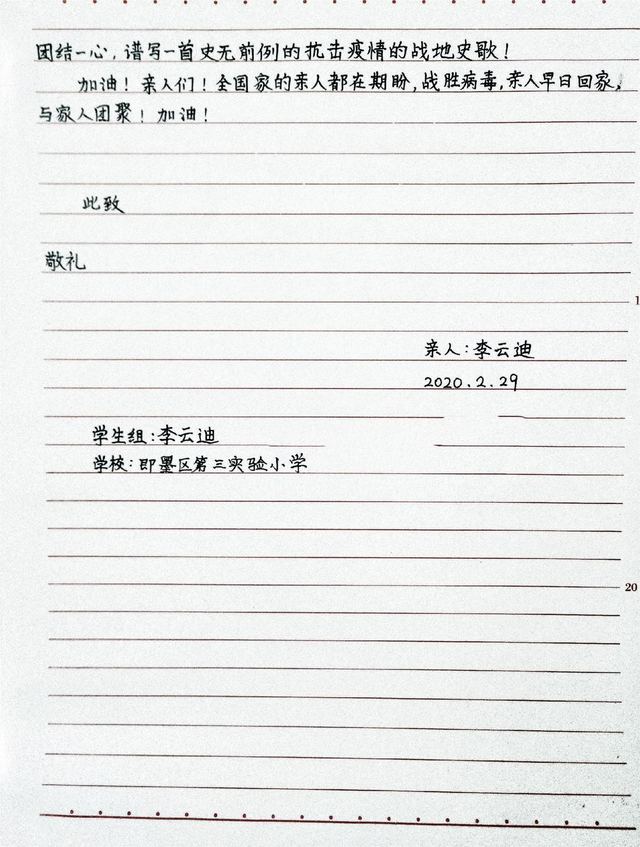 团结一心，谱写一首史无前例的抗击疫情的战地史歌！
加油！亲人们！全国家的亲人都在期盼，战胜病毒，亲人早日回家，
与家人团聚！加油！
此致
敬礼
1
亲人：李云迪
2020.2.29
学生组：李云迪
学校：即墨区第三实验小学
20